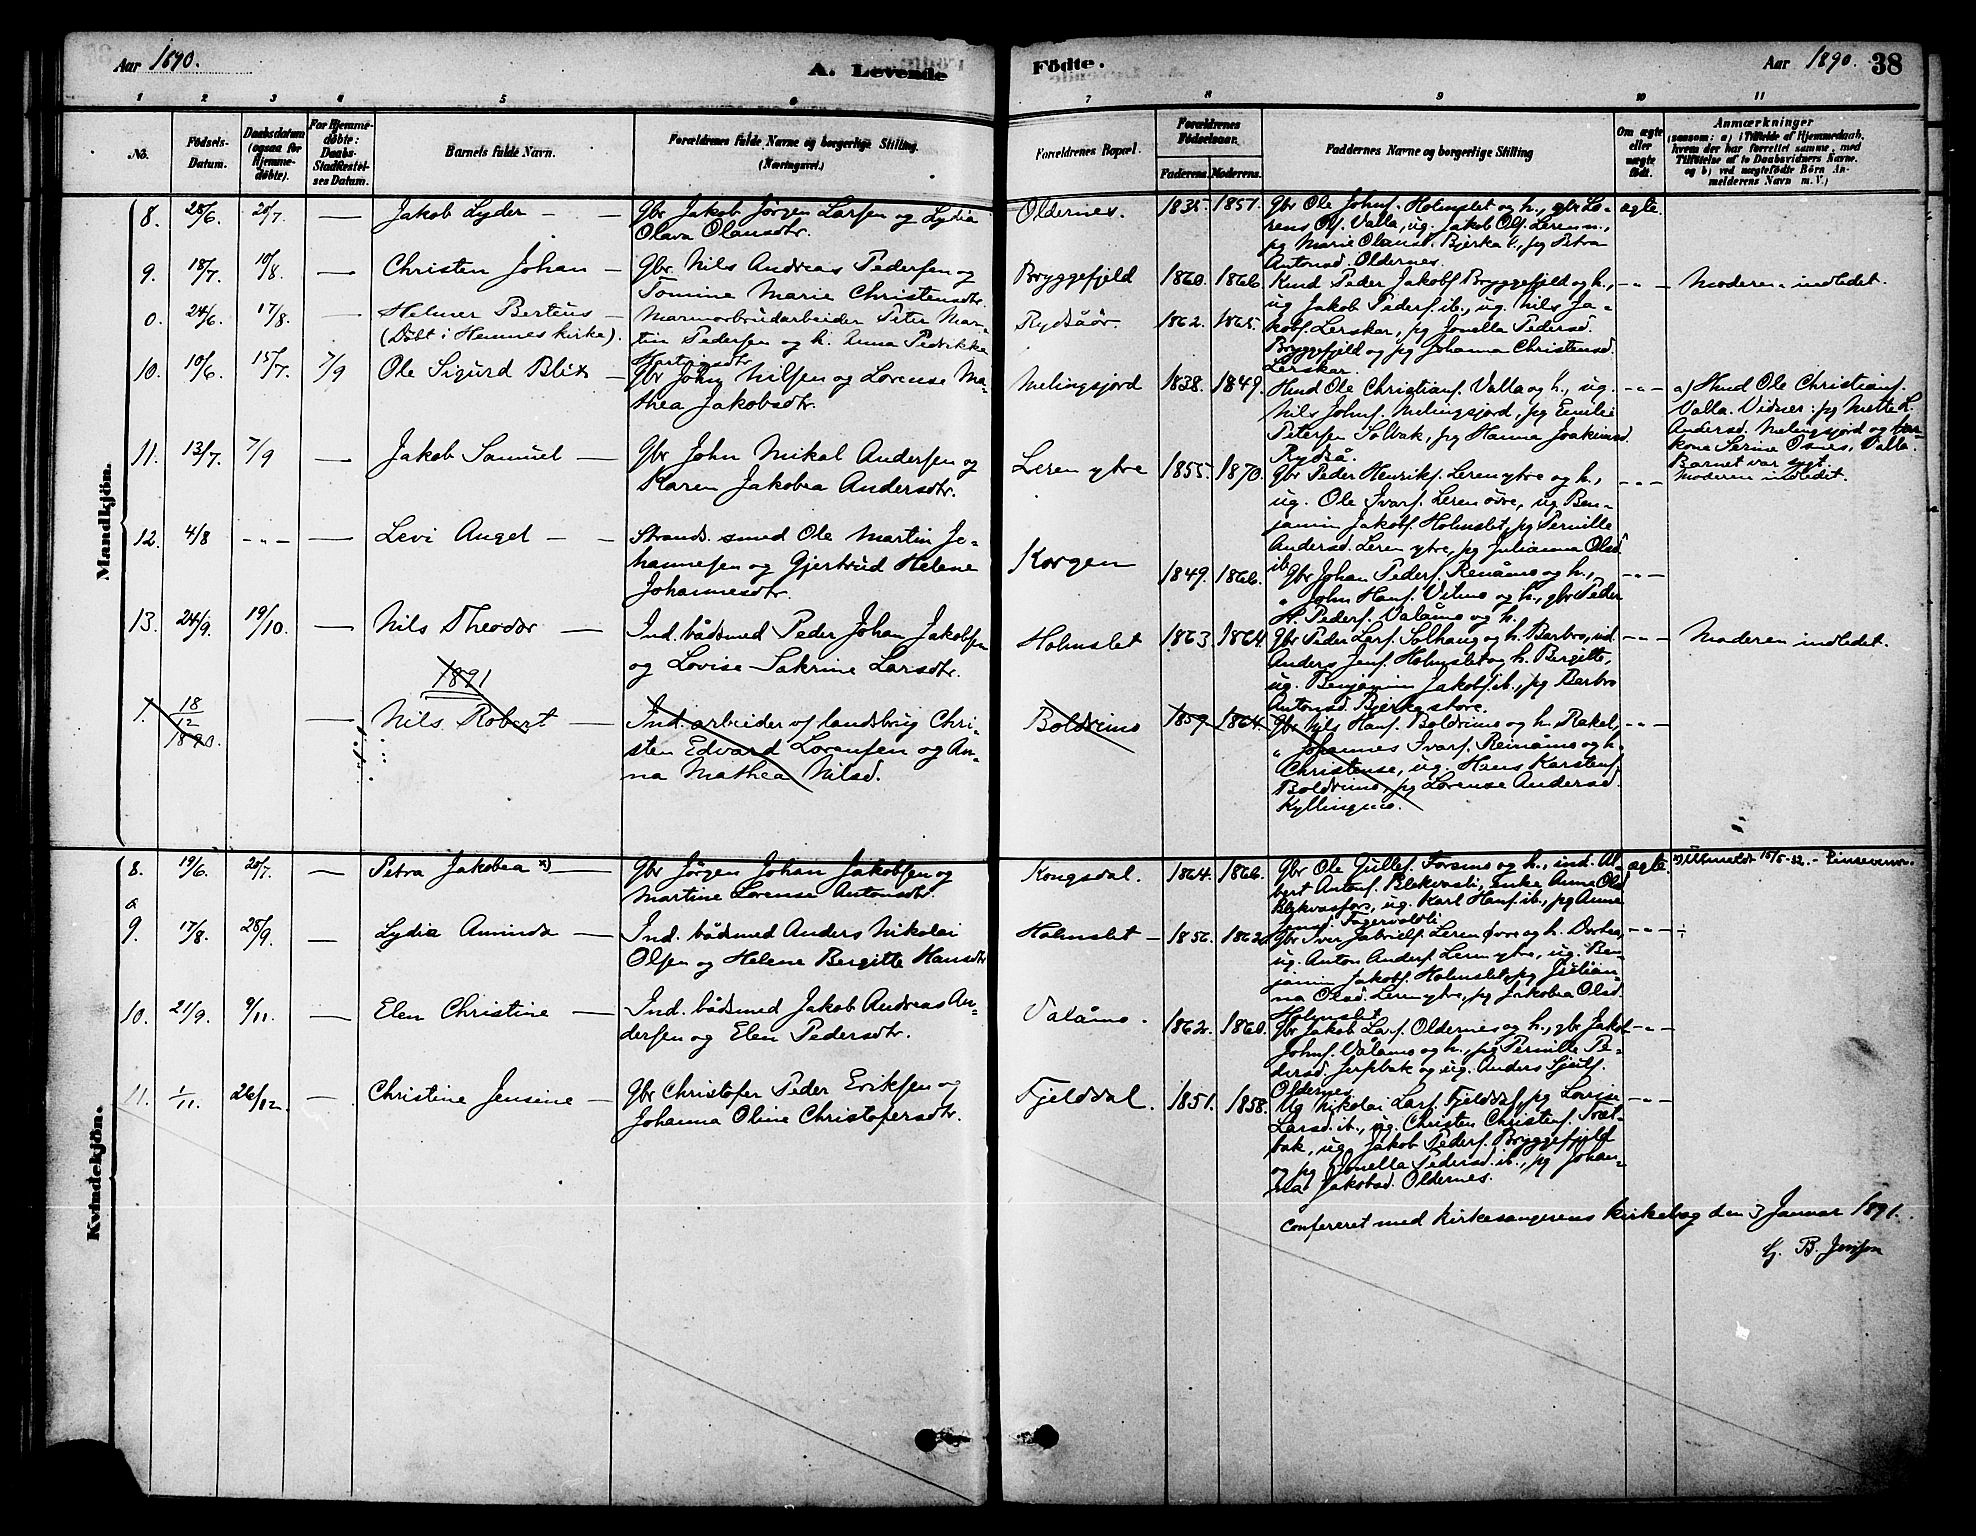 Aar 1890.
A. Levende
Födte.
Aar 1890.
38
1 2 3 4 5 6 7 8 9 10 11
No.
Födsels-
Datum.
Daabsdatum
(ogsaa for
Hjemme-
døbte).
For Hjemme-
døbte:
Daabs-
Stadfæstel-
ses Datum.
Barnets fulde Navn.
Forældrenes fulde Navne og borgerlige Stilling.
(Næringsvei.)
Forældrenes Bopæl.
Forældrenes
Födselsaar.
Faderens. Moderens.
Faddernes Navne og borgerlige Stilling
Om ægte
eller
uægte
født.
Anmærkninger
(saasom: a) i Tilfælde af Hjemmedaab,
hvem der har forrettet samme, med
Tilföielse af to Daabsvidners Navne,
og b) ved uægtefødte Börn An-
melderens Navn m. V.)
Mandkjön.
8. 28/6. 20/7. — Jakob Lyder — —
Gbr Jakob Jörgen Larsen og Lydia
Olava Olausdtr.
Oldernes. 1835. 1851.
Gbr Ole Johns. Holmslet og h., gbr Lo-
rens Ols. Valla, ug. Jakob Ols. Leren n.,
pg Marie Olausd. Bjerka l., pg Petra
Antonsd. Oldernes.
ægte.
9. 18/7. 10/8. — Christen Johan —
Gbr. Nils Andreas Pedersen og
Tomine Marie Christensdtr.
Bryggefjeld 1860. 1866.
Kmd Peder Jakobs. Bryggefjeld og h.,
ug Jakob Peders. ib., ug. Nils Ja-
kobs. Lerskar, pg Jonella Pedersd.
Bryggefjeld og pg Johanna Christensd.
Lerskar.
— " — Moderen indledet.
0. 24/6. 17/8. — Helmer Berteus —
(Döbt i Hemnes kirke).
Marmorbrudarbeider Peter Mar-
tin Pedersen og h. Anna Pedrikka
Hartvigsdtr.
Rydsåör. 1862. 1865.
10. 10/6. 15/7. 7/9 Ole Sigurd Blix —
Gbr John Nilsen og Lorense Ma-
thea Jakobsdtr.
Melingsjord 1838. 1849.
Hmd Ole Christians. Valla og h., ug.
Nils Johns. Melingsjord, pg Emilie
Petersen Solbak, pg Hanna Joakimsd.
Rydså.
— " — a) Hmd Ole Christians.
Valla. Vidner: pg Mette L.
Andersd. Melingsjord og
kone Serine Osnes, Valla.
Barnet var sygt.
11. 13/7. 7/9 Jakob Samuel —
Gbr John Mikal Andersen og
Karen Jakobea Andersdtr.
Leren ytre 1855. 1870.
Gbr Peder Henriks. Leren ytre og h.,
ug. Ole Ivars. Leren övre, ug Ben-
jamin Jakobs. Holmslet, pg Pernille
Andersd. Leren ytre, pg Julianna Olsd.
ib.
— " — Moderen indledet.
12. 4/8 — " — — Levi Angel — —
Strands. smed Ole Martin Jo-
hannesen og Gjertrud Helene
Johannesdtr.
Korgen 1849. 1866.
Gbr Johan Peders. Renåmo og h.,
" John Hans. Vilmo og h., gbr Peder
N. Peders. Valåmo og h.
— " —
13. 24/9. 19/10. — Nils Theodor —
Ind. bådsmed Peder Johan Jakobsen
og Lovise Sakrine Larsdtr.
Holmslet 1863. 1864.
Gbr Peder Lars. Solhaug og h. Barbro, ind.
Anders Jens. Holmslet og h. Bergitte,
ug. Benjamin Jakobs. ib., pg Barbro
Antonsd. Bjerka store.
— " — Moderen indledet.
1891
1. 18/12 1890. — Nils Robert —
Ind. arbeider v/ landsbrug Chri-
sten Edvard Lorensen og An-
na Mathea Nilsd.
Boldrimo 1859 1864.
Gbr Nils Hans. Boldrimo og h. Rakel,
" Johannes Ivars. Reinåmo og h.
Christense, ug. Hans Karstens.
Boldrimo, pg Lorense Andersd.
Kyllingmo.
— " —
Kvindekjön.
8. 19/6. 20/7. — Petra Jakobea x)
Gbr Jörgen Johan Jakobsen og
Martine Lorense Antonsdtr.
Kongsdal. 1864. 1866.
Gbr Ole Gulles. Forsmo og h., ind. Al-
bert Antons. Blekvasli, enke Anne Olsd.
Blekvasfors, ug. Karl Hans. ib., pg Anne
Jensd. Fagervoldli
ægte.
9. 17/8. 28/9. — Lydia Aminda —
Ind. bådsmed Anders Nikolai
Olsen og Helene Bergitte Hansdtr
Holmslet — 1856. 1862.
Gbr Iver Gabriels. Leren övre og h. Dorthea,
ug. Anton Anders. Leren ytre, ug. Ben-
jamin Jakobs. Holmslet, pg Julian-
na Olsd. Leren ytre, pg Jakobea Olsd.
Holmslet.
— " —
10. 21/9. 9/11. — Elen Christine —
Ind. bådsmed Jakob Andreas An-
dersen og Elen Pedersdtr.
Valåmo. 1862. 1860.
Gbr Jakob Lars. Oldernes og h., gbr Jakob
Johns. Valåmo og h., pg Pernille Pe-
dersd. Jerpbak og ug. Anders Gjuls.
Oldernes.
— " —
11. 1/11. 26/12. — Christine Jensine —
Gbr Christofer Peder Eriksen og
Johanna Oline Christofersdtr.
Fjelddal. 1851. 1858.
Ug Nikolai Lars. Fjelddal, pg Lovise
Larsd. ib., ug. Christen Christens. Træt-
bak, ug. Jakob Peders. Bryggefjeld
og pg Jonella Pedersd. ib., pg Johan-
na Jakobsd. Oldernes.
— " —
Confereret med kirkesangerens kirkebog den 3 Januar 1891.